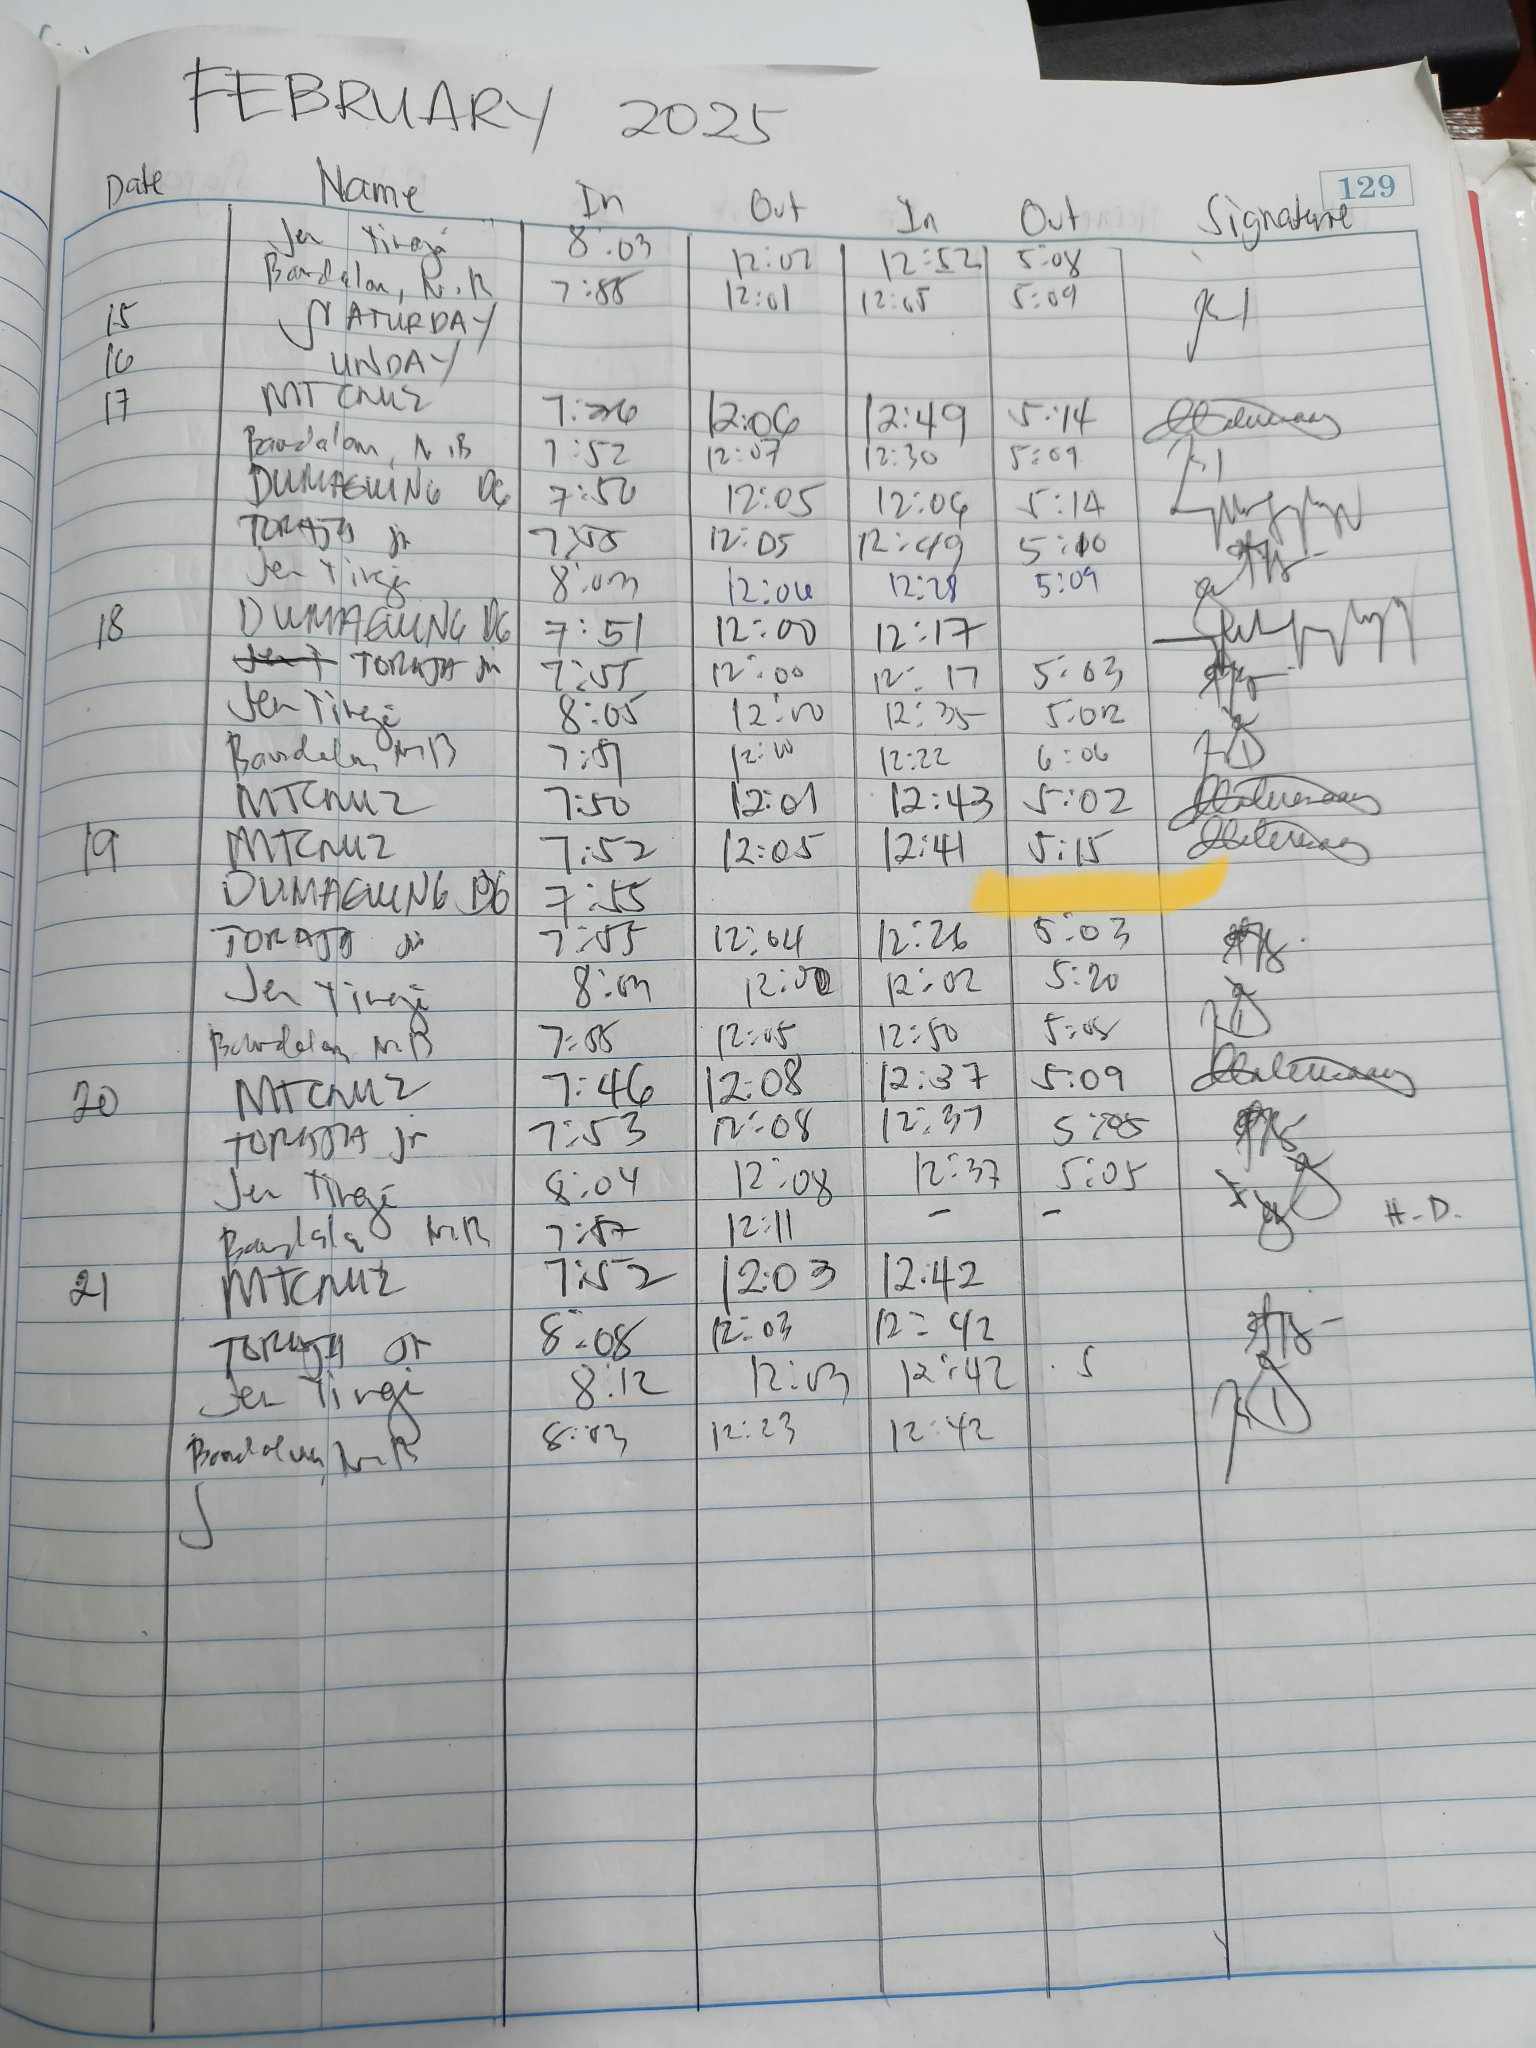 FEBRUARY 2025
129
Date Name In Out In Out Signature
Jen 8:03 12:02 12:52 5:08
Bandalan, N.B 7:55 12:01 12:05 5:09
15 SATURDAY
16 UNDAY
17 MTCRUZ 12:06 12:49 5:14
Bandalan, N.B 7:52 12:07 12:30 5:09
DUMAGUING DG 7:50 12:05 12:06 5:14
jr 7:55 12:05 12:49 5:10
Jen 8:03 12:06 12:28 5:09
18 DUMAGUING DG 7:51 12:00 12:17
jr 7:55 12:00 12:17 5:03
Jen 8:05 12:00 12:35 5:02
Bandalan, N.B 12:10 12:22 6:06
MTCRUZ 7:50 12:01 12:43 5:02
19 MTCRUZ 7:52 12:05 12:41 5:15
DUMAGUING DG 7:55
jr 7:55 12:04 12:26 5:03
Jen 8:03 12:02 5:20
Bandalan, N.B 7:55 12:05 12:50 5:05
20 MTCRUZ 7:46 12:08 12:37 5:09
jr 7:53 12:08 12:37 5:05
Jen 8:04 12:08 12:37 5:05
N.B 7:57 12:11 - - H.D.
21 MTCRUZ 7:52 12:03 12:42
Jr 8:08 12:03 12:42
Jen 8:12 12:03 12:42 5
Bandalan, N.B 8:03 12:23 12:42
J